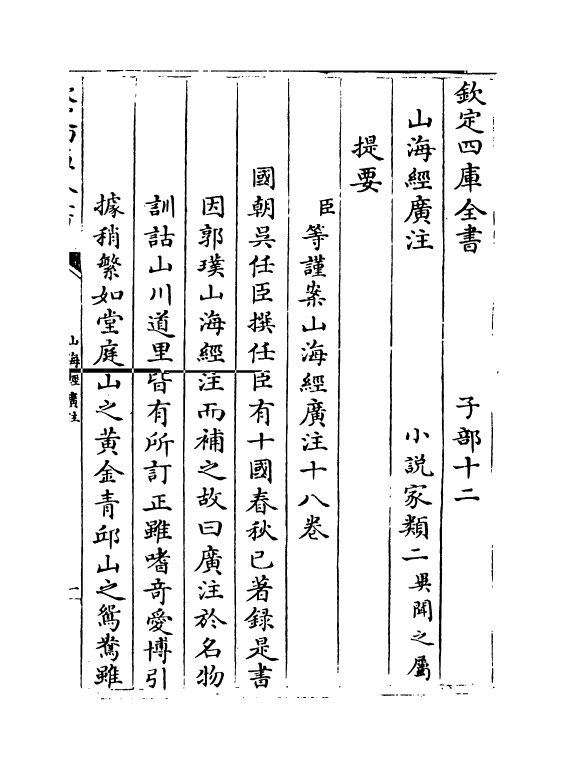 欽定四庫全書　子部十二
山海經廣注　小說家類二異聞之屬
提要
臣等謹案山海經廣注十八卷
國朝吳任臣撰任臣有十國春秋已著録是書
因郭璞山海經注而補之故曰廣注於名物
訓詁山川道里皆有所訂正雖嗜竒愛博引
據稍繁如堂庭山之黄金青邱山之鴛鴦雖
山海經廣注